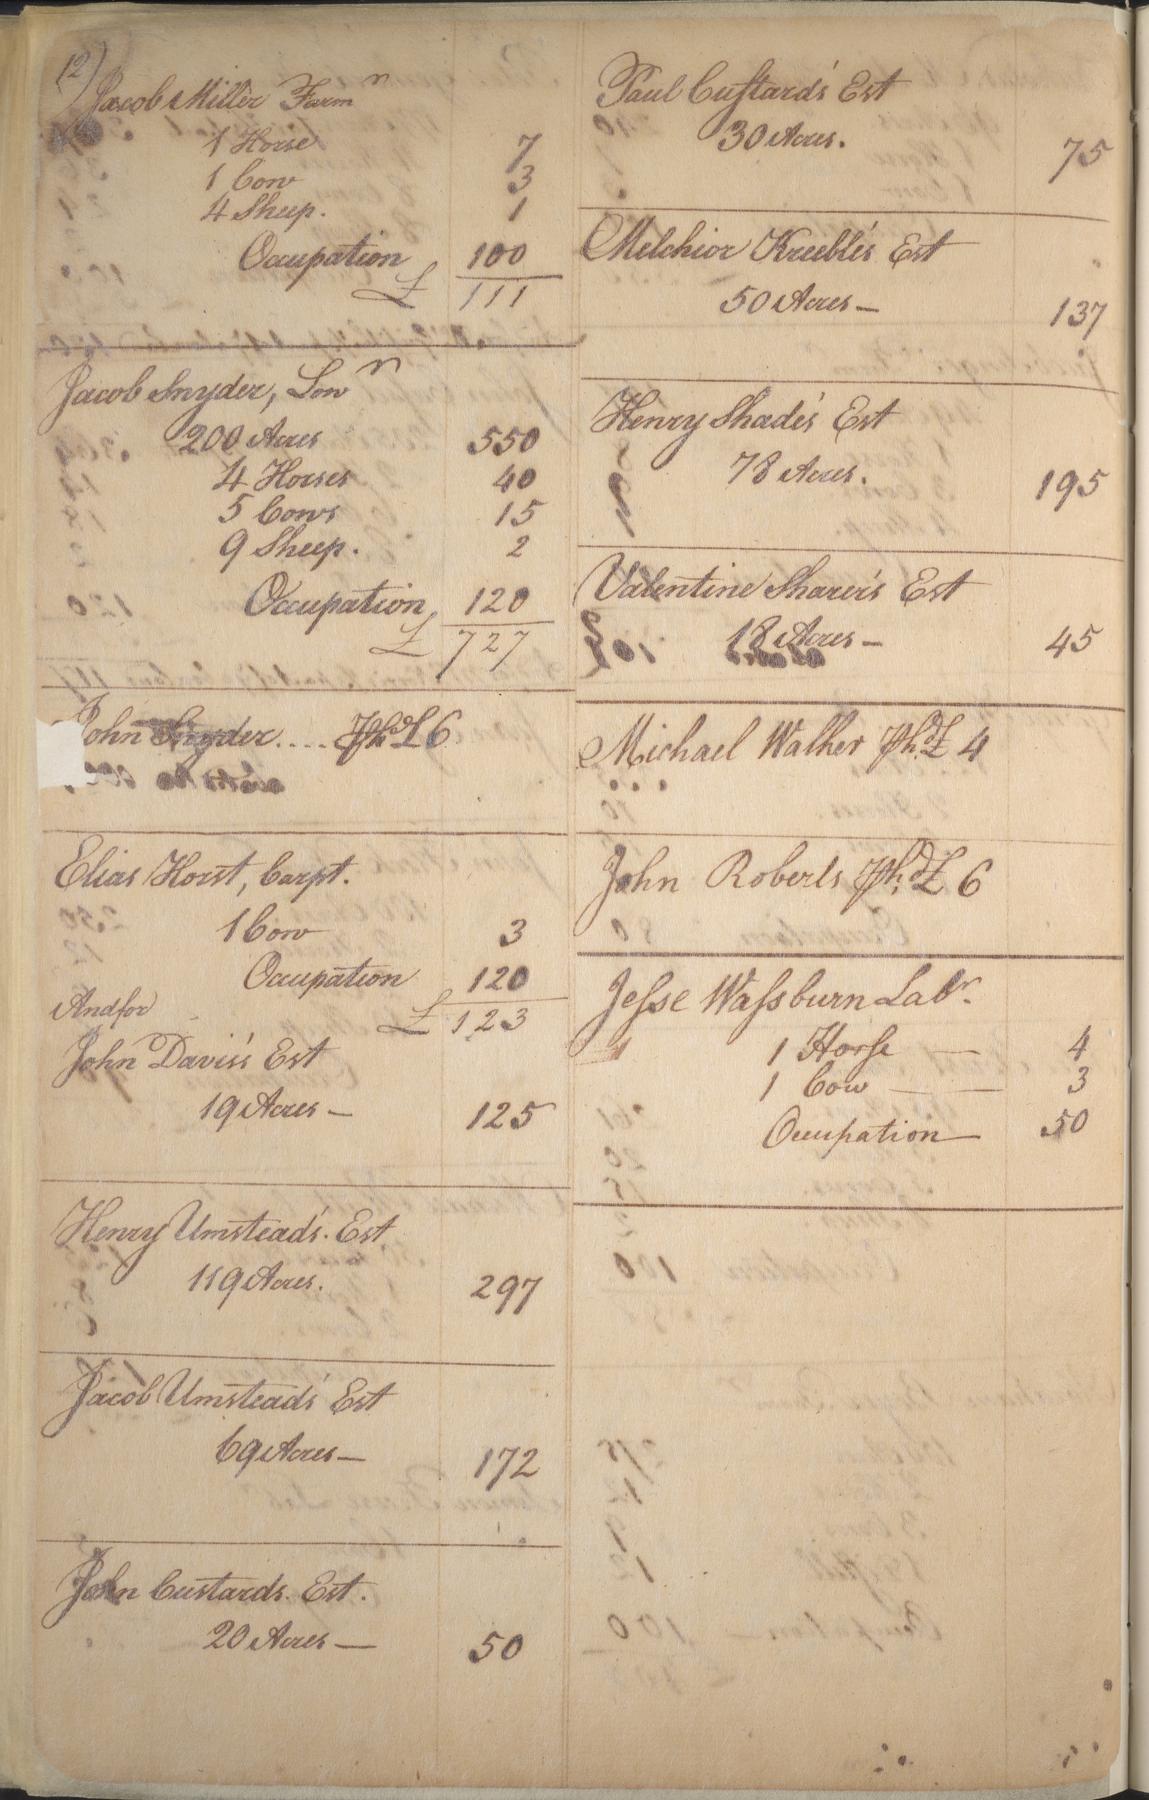 12)
Jacob Miller Farmr
1 Horse 7
1 Cow 3
4 Sheep. 1
Occupation 100
£ 111
Jacob Snyder, Lonr
200 Acres 550
4 Horses 40
5 Cows 15
9 Sheep. 2
Occupation 120
£ 727
John Snyder .... Phd £ 6
Elias Horst, Carpt.
1 Cow 3
Occupation 120
Andfor £ 123
John Davis's Est
19 Acres — 125
Henry Umstead's. Est
119 Acres. 297
Jacob Umstead's Est
69 Acres — 172
John Custards. Est.
20 Acres — 50
Paul Custard's Est
30 Acres. 75
Melchior Kreeble's Est
50 Acres — 137
Henry Shade's Est
78 Acres. 195
Valentine Sharer's Est
18 Acres — 45
Michael Walker Phd £ 4
John Roberts Phd £ 6
Jesse Wassburn Labr.
1 Horse — 4
1 Cow — — 3
Occupation — 50